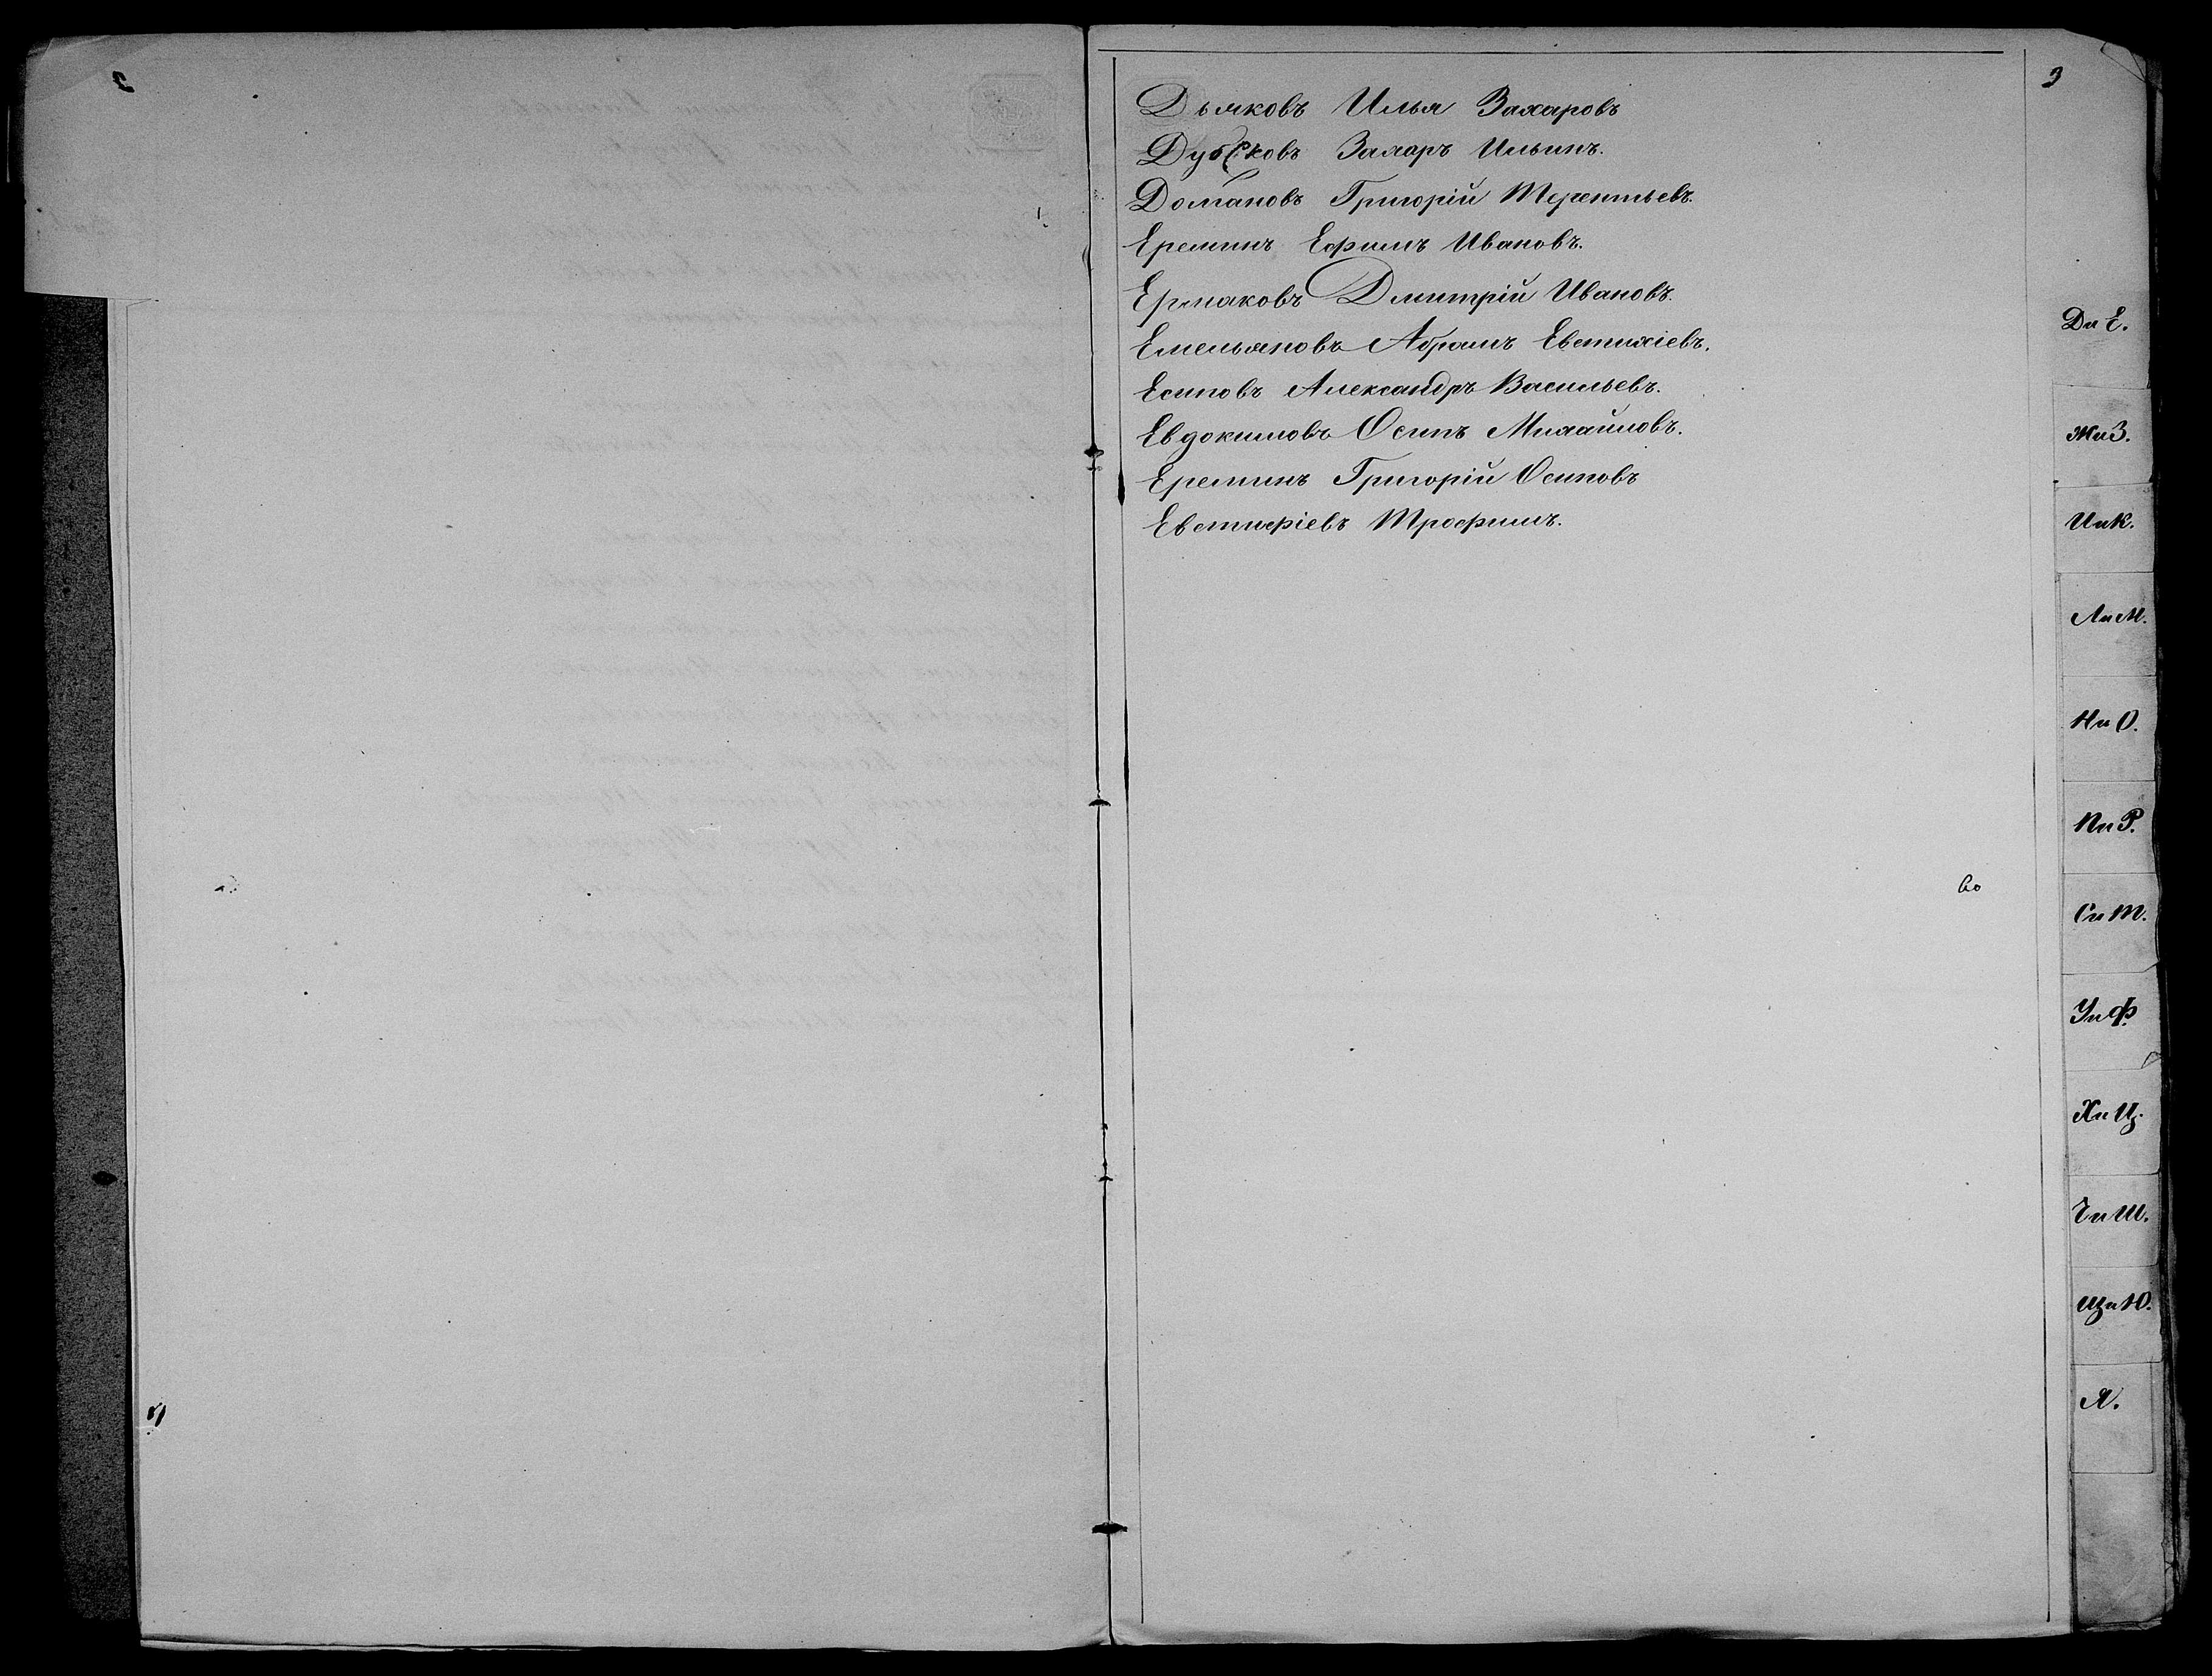 3
Дьяковъ Илья Захаровъ
Дубсковъ Захаръ Ильинъ.
Домановъ Григорій Терентьевъ.
Ереминъ Ефимъ Ивановъ.
Ермаковъ Дмитрій Ивановъ.
Емельяновъ Абрамъ Евстихіевъ.
Есиповъ Александръ Васильевъ.
Евдокимовъ Осипъ Михайловъ.
Ереминъ Григорій Осиповъ
Евстифіевъ Трофимъ.
Д и Е.
Ж и З.
И и К.
Л и М.
Н и О.
П и Р.
С и Т.
У и Ф.
Х и Ц.
Ч и Ш.
Щ и Ю.
Я.